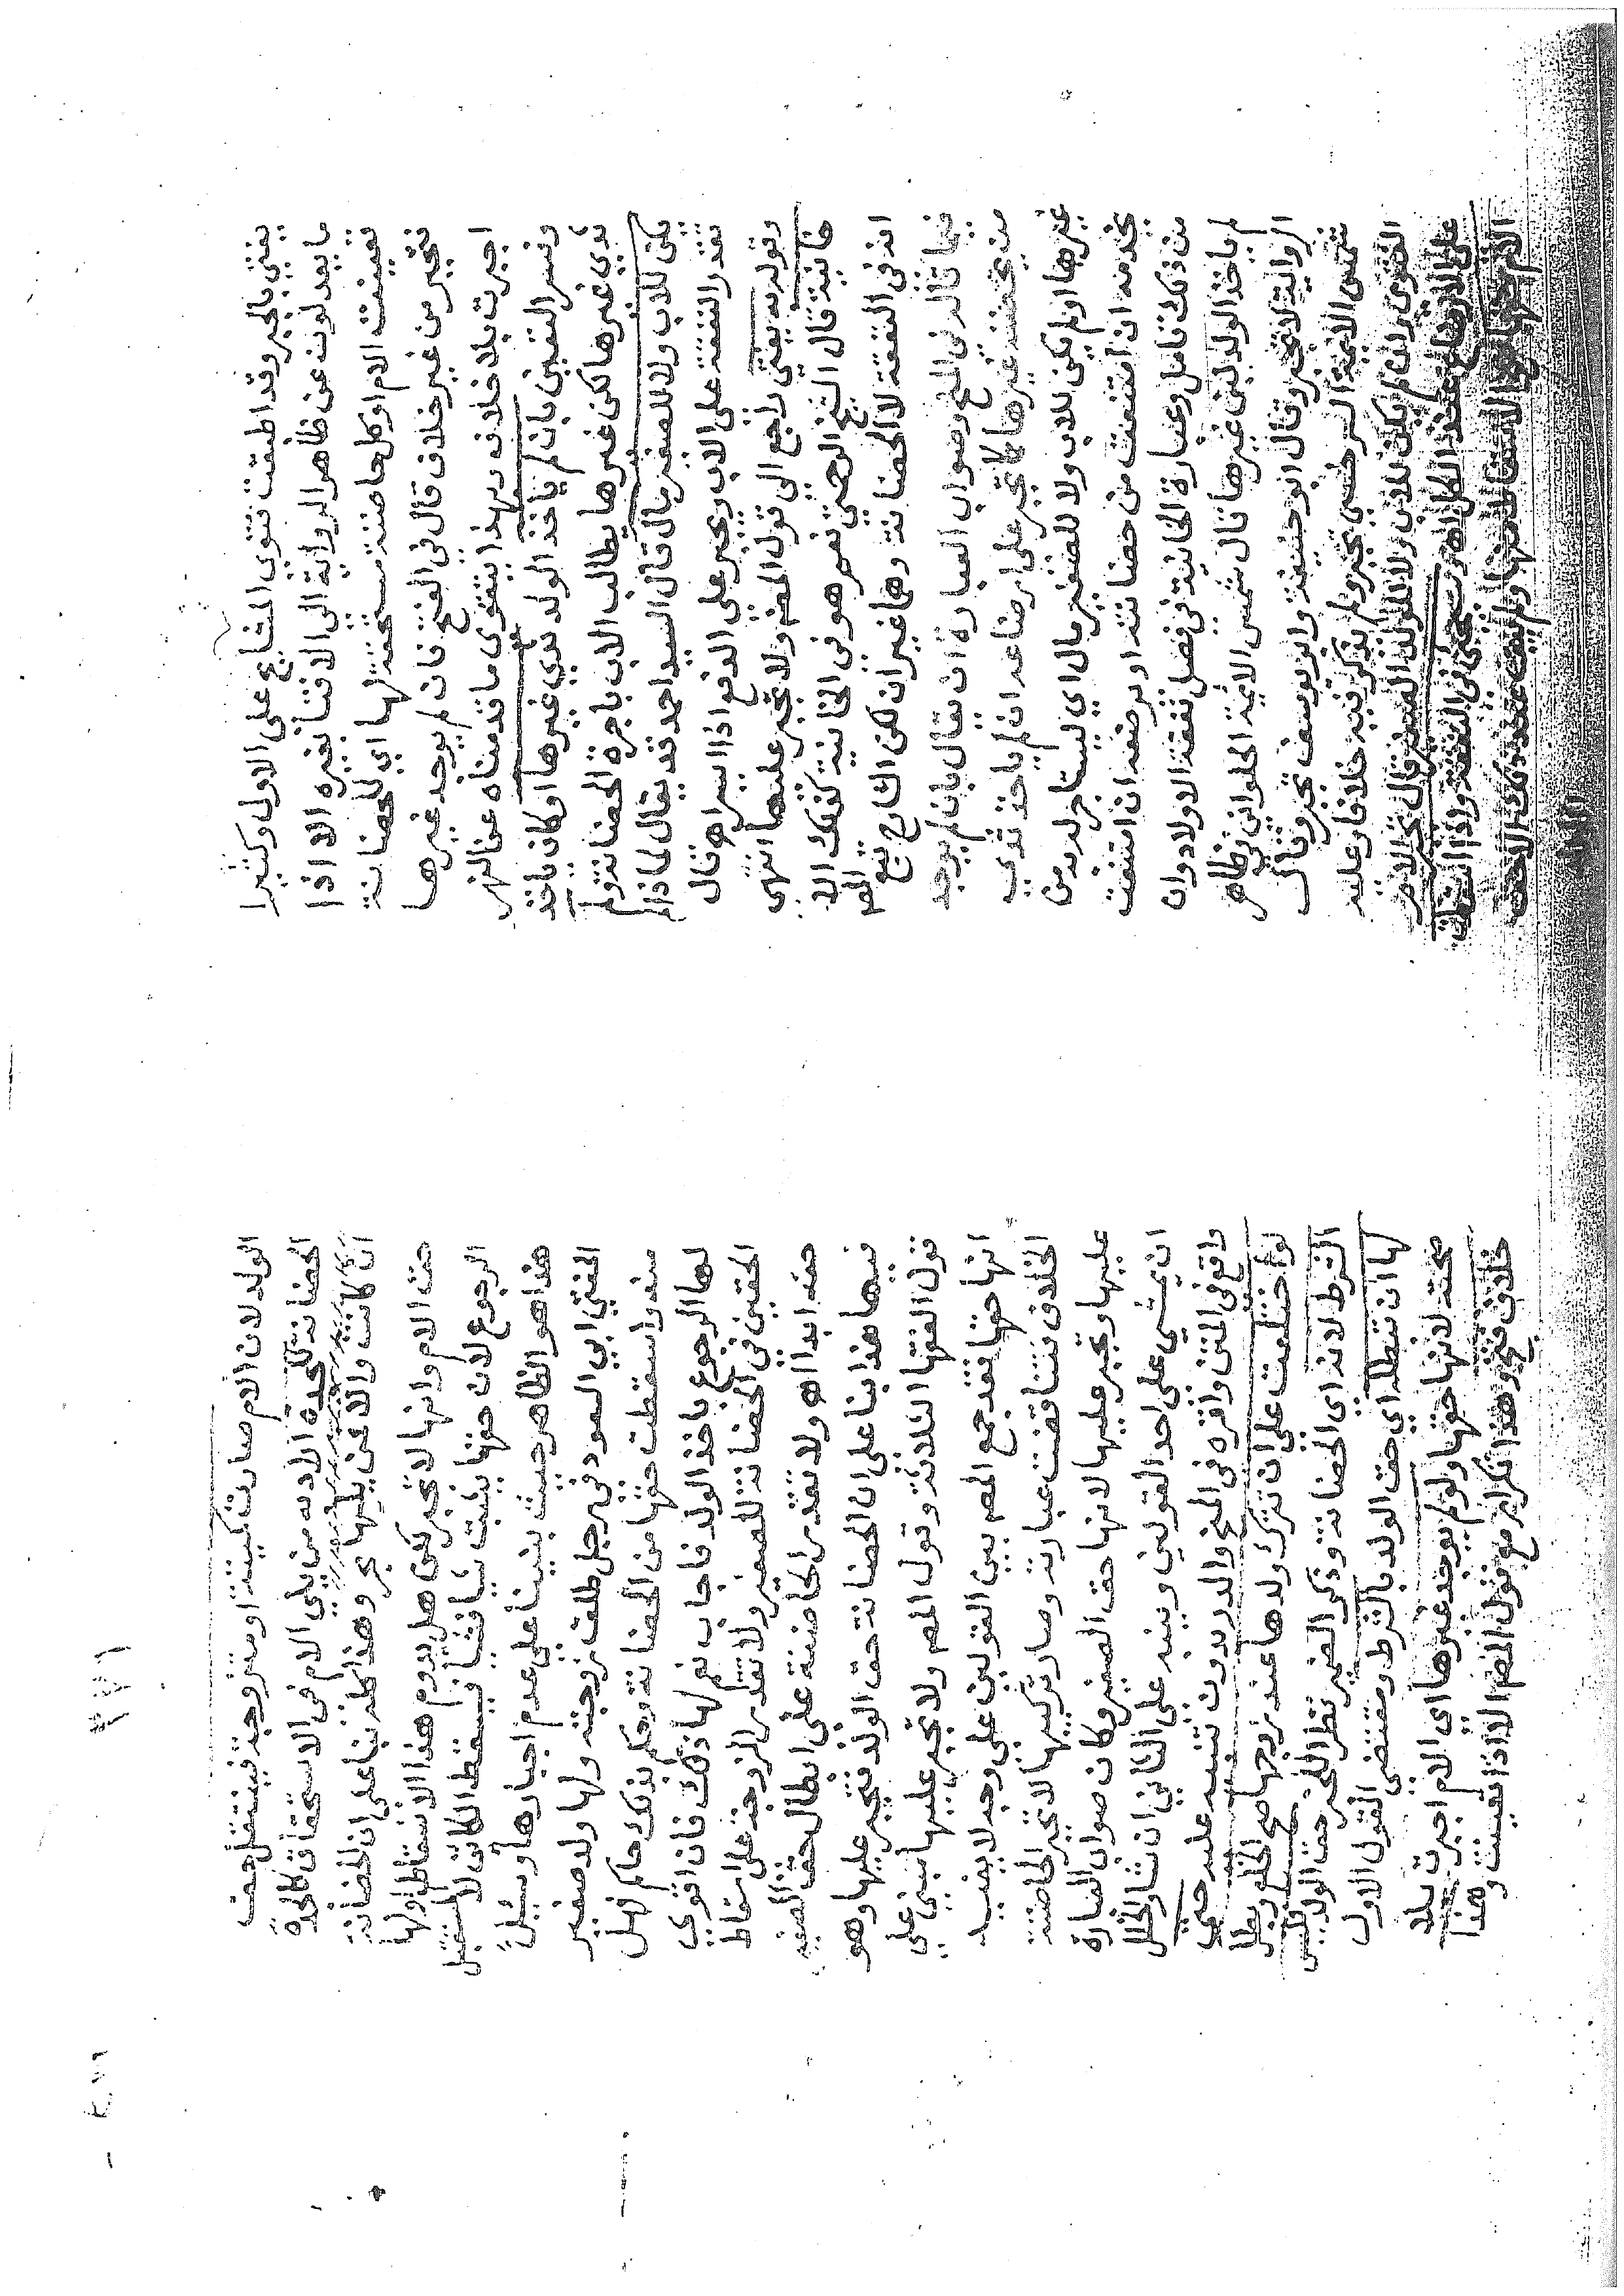 يفتي بالجبر وقد اطبقت فتوى المشايخ على الاول وكثيرا
ما يعدلون عن ظاهر الرواية الى الافتا بغيره الا اذا
تعينت الام او كل حاضنة مستحقة لها اي للحضانة
فتجبر من غير خلاف قال في الفتح فان لم يوجد غيرها
اجبرت بلا خلاف وبهذا يتقوى ما قدمناه عن النهر
وفسر التعين بان لم ياخذ الولد ثدي غيرها او كان ياخذ
ثدي غيرها لكن غيرها يطالب الاب باجرة الحضانة ولم
يكن للاب ولا للصغير مال قال السيد احمد قد يقال لماذا لم
تقدر النفقة على الاب ويجبر على الدفع اذا ايسر اهـ قال
وقوله به يفتي راجع الى قول المص ولا تجبر عليها انتهى
خانية قال الشيخ الرحمتي نعم هو في الخانية كذلك الا
انه في النفقة لا الحضانة وهما غيران لكن الشارح تبع المص
فيما قاله في المنح وصواب العبارة ان يقال بان لم يوجد
من يحضنه غيرها كما تجبر على ارضاعه ان لم ياخذ ثدي
غيرها او لم يكن للاب ولا للصغير مال اي ليستاجر له من
يخدمه ان امتنعت من حضانته او يرضعه ان امتنعت
من ذلك تامل وعبارة الخانية في فصل نفقة الاولاد وان
لم ياخذ الولد لبن غيرها قال شمس الايمة الحلواني في ظاهر
الرواية لا تجبر وقال ابو حنيفة وابو يوسف تجبر وقال
شمس الايمة السرخسي تجبر ولم يذكر فيه خلافا وعليه
الفتوى وان لم يكن للاب ولا للولد الصغير مال تجبر الام
على الارضاع عند الكل اهـ
٢٣١
الولد لان الام صارت كميتة او متزوجة فينتقل حق
الحضانة للجدة الا انه من يلي الام في الاستحقاق كالجدة
ان كانت والا فمن يليها بحر وهذا كله بنا على ان الحضانة
حق الام وانها لا تجبر لكن هل يدوم هذا الاسقاط او لها
الرجوع لان حقها يثبت شيا فشيا فيسقط الكائن لا المستقبل
هذا هو الظاهر حيث بنينا على عدم اجبارها وسئل
المفتي ابي السعود في رجل طلق زوجته ولها ولد صغير
منه واسقطت حقها من الحضانة وحكم بذلك حاكم فهل
لها الرجوع باخذ الولد فاجاب نعم لها ذلك فان اقوى
الحقين في الحضانة للصغير ولا تقدر الزوجة على اسقاط
حقه ابدا اهـ ولا تقدر الحاضنة على ابطال حق الصغير
فيها هذا بنا على ان الحضانة حق الولد فتجبر عليها وهو
قول الفقها الثلاثة وقول المص ولا تجبر عليها مبني على
انها حقها فقد جمع المص بين القولين على وجه لا يفيد
الخلاف فتناقضت عبارته وصار تركيبها لا تجبر الحاضنة
عليها وتجبر عليها لانها حق الصغير وكان صواب العبارة
ان يمشي على احد القولين وينبه على الثاني ان شا والخلل
واقع في المتن واقره في المنح والدر بدون تنبيه عليه حتى
لو اختلعت على ان تترك ولدها عند زوجها صح الخلع وبطل
الشرط لانه اي الحضانة وذكر الضمير نظرا للخبر حق الولد فليس
لها ان تبطله اي حق الولد بالشرط ومقتضى القول الاول
صحته لانها حقها ولو لم يوجد غيرها اي الام اجبرت بلا
خلاف فتح وهذا تكرار مع قول المص الا اذا تعينت وهذا